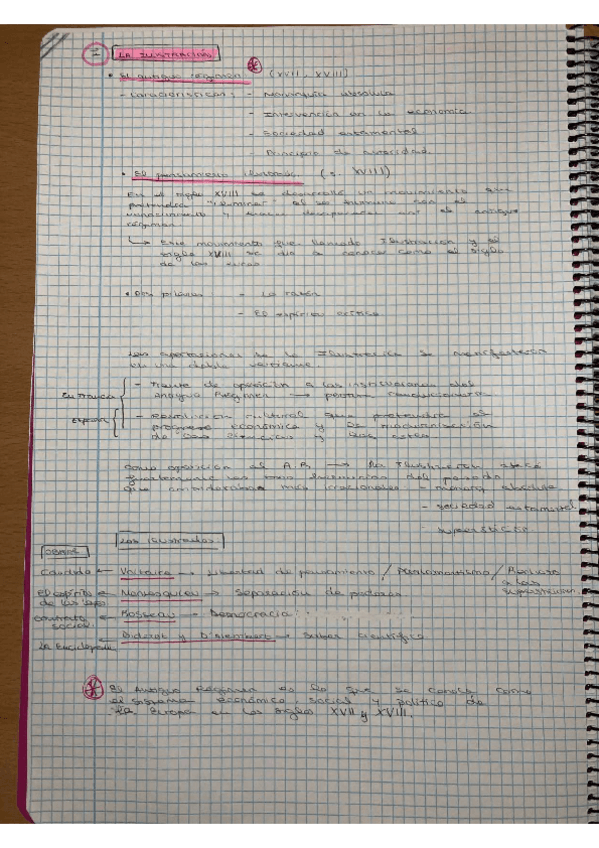 I LA ILUSTRACIÓN
• El antiguo régimen (XVII, XVIII)
- Características: - Monarquía absoluta
- Intervención en la economía
- Sociedad estamental
- Principio de autoridad.
• El pensamiento (s. XVIII)
En el siglo XVIII se desarrolla un movimiento que
pretendía "iluminar" al ser humano con el
y el antiguo
régimen.
↳ Este movimiento que llamado Ilustración y el
siglo XVIII se dio a conocer como el siglo
de las luces
• Dos pilares - La razón
- El espíritu crítico
Las aportaciones de la Ilustración se
en una doble vertiente:
- Frente de oposición a las instituciones del
antiguo Régimen →
- cultural que pretendía el
progreso económico y la modernización
de las ciencias y las artes
Como oposición al A.R → la Ilustración
del pasado
que más irracionales - absoluta
- sociedad estamental
-
Los ilustrados
Obras
Cándido ← Voltaire → Libertad de pensamiento / Parlamentarismo / Rechazo
a las
El espíritu ← → Separación de poderes
de las leyes
contrato ← → Democracia
social.
← Diderot y D'Alembert → Saber científico
La Enciclopedia
* El Antiguo Régimen es lo que se conoce como
el sistema económico, social y político de
la Europa en los siglos XVII y XVIII.